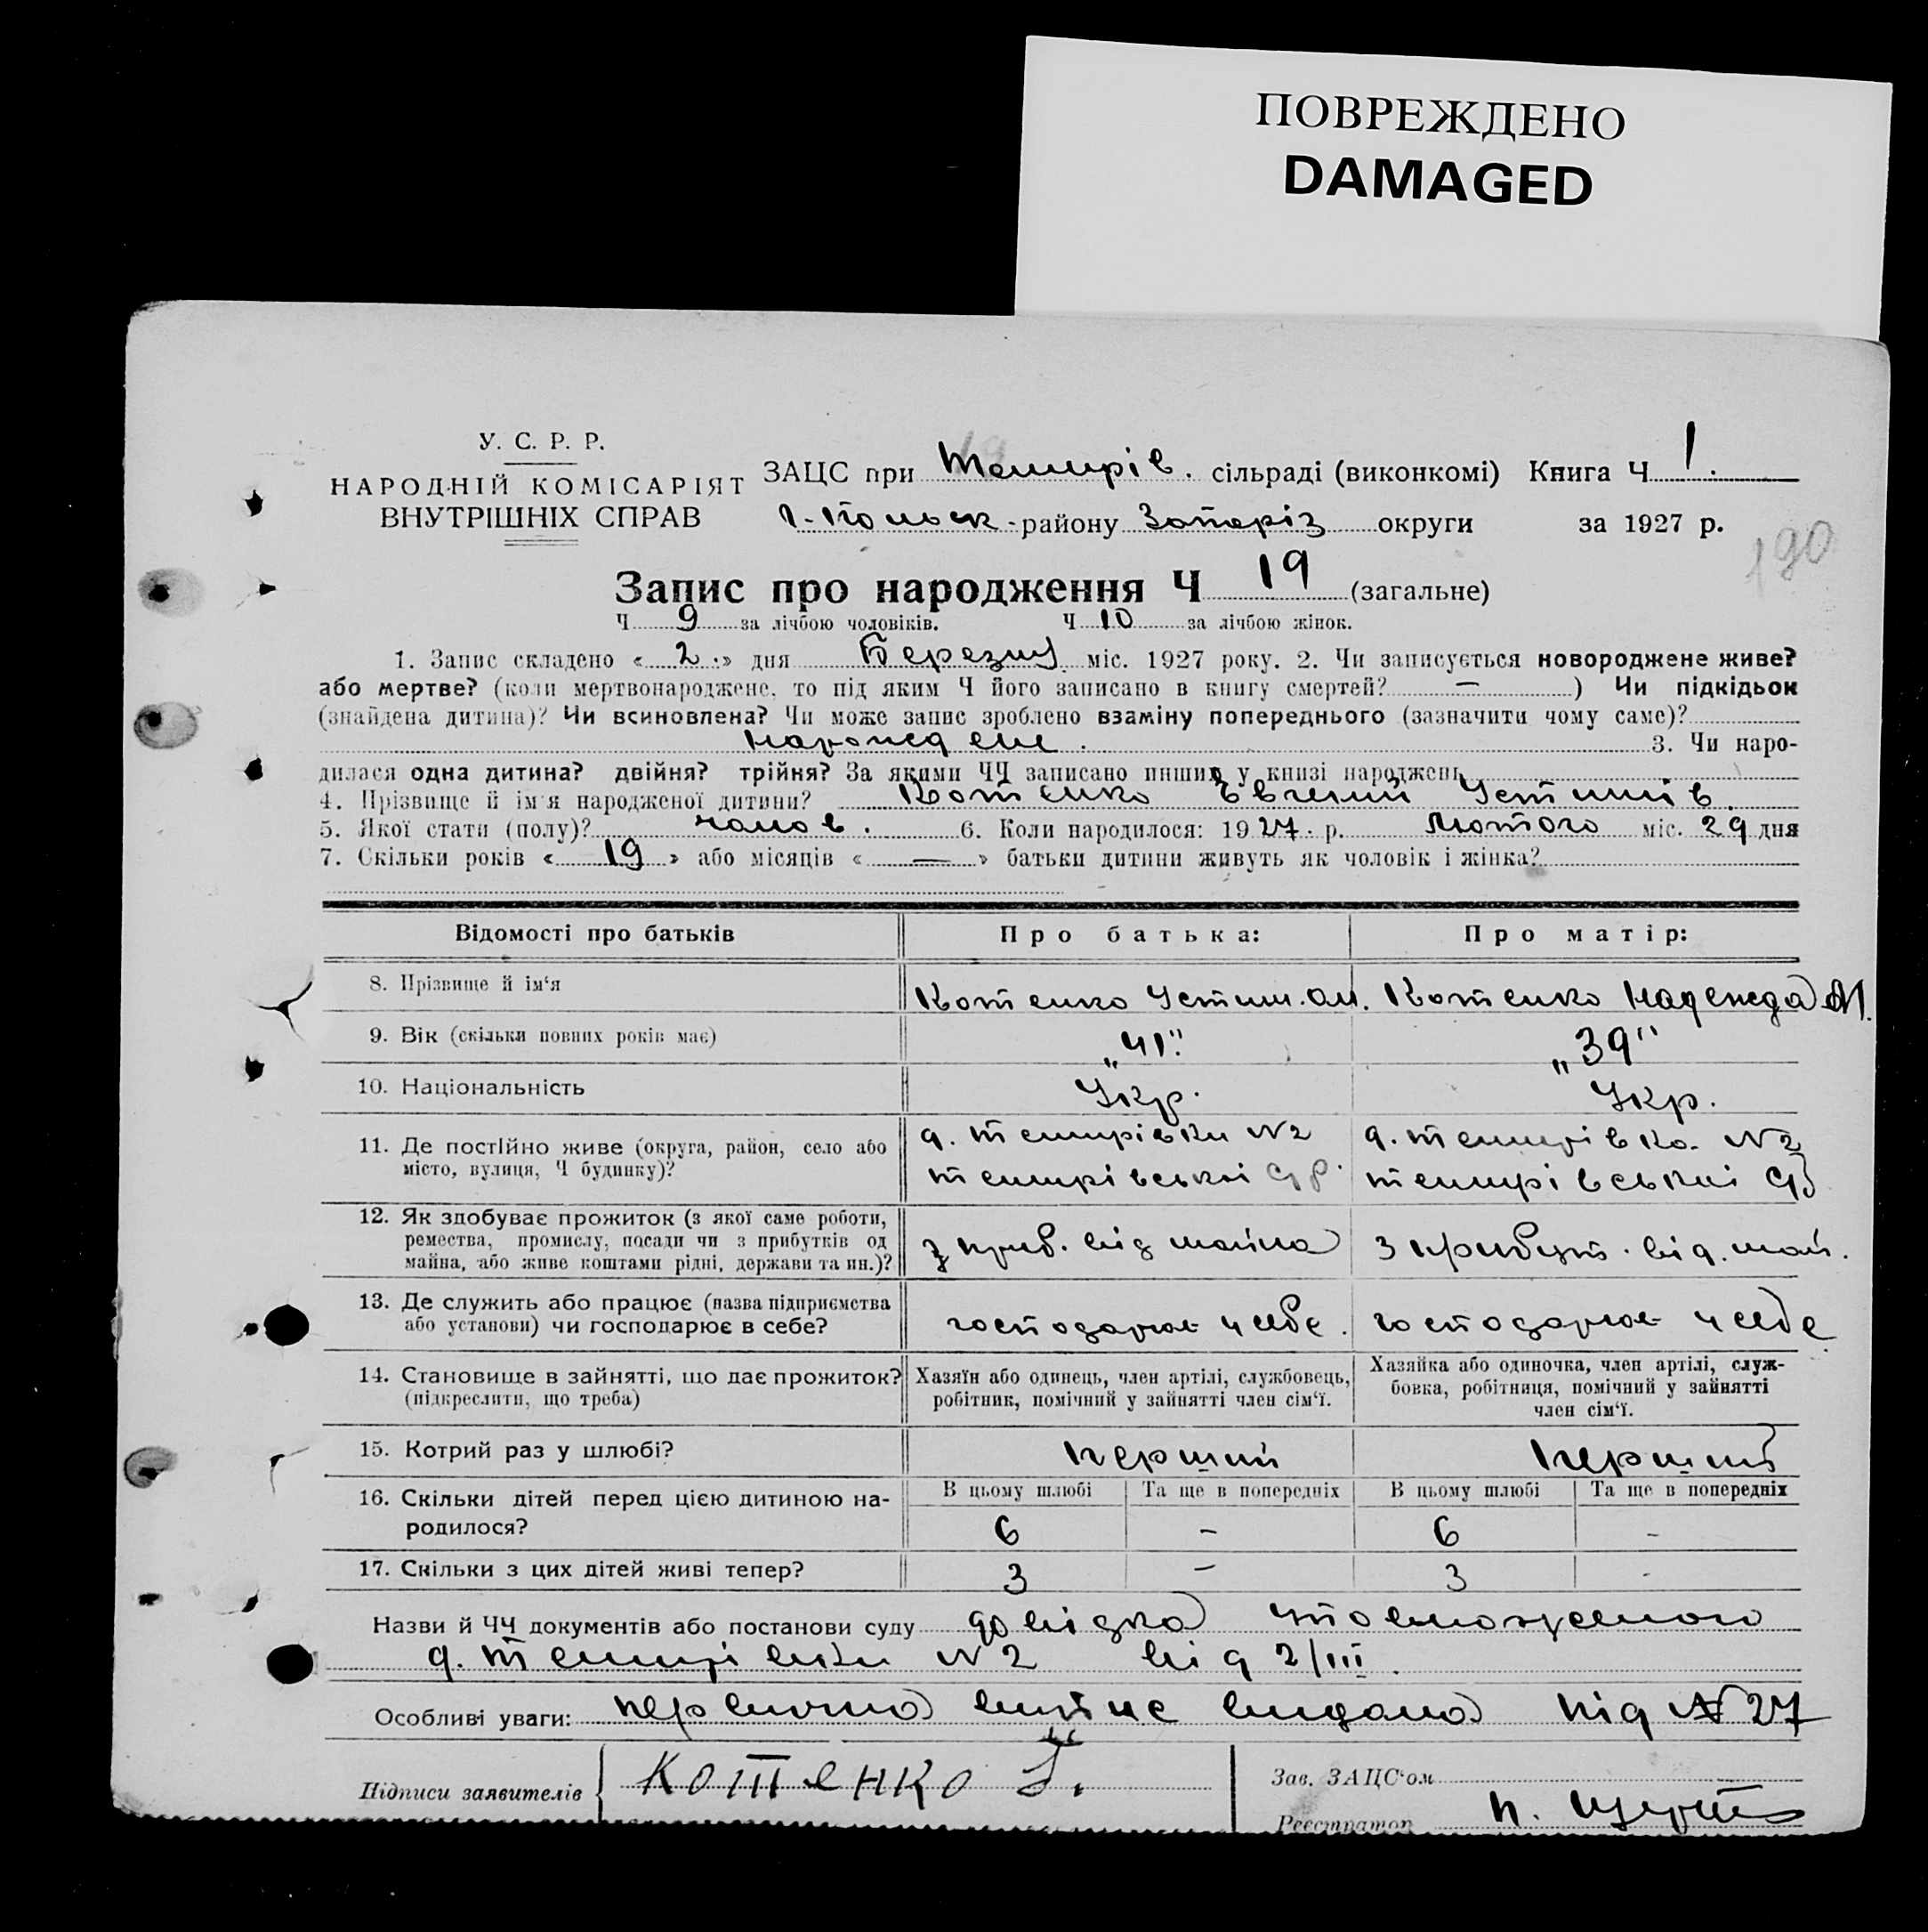 ПОВРЕЖДЕНО
DAMAGED
У. С. Р. Р.
НАРОДНІЙ КОМІСАРІЯТ
ВНУТРІШНІХ СПРАВ
ЗАЦС при Темирів. сільраді (виконкомі) Книга Ч 1.
району Запоріз округи за 1927 р.
190
Запис про народження Ч 19 (загальне)
Ч 9 за лічбою чоловіків. Ч 10 за лічбою жінок.
1. Запис складено « 2 » дня Березня міс. 1927 року. 2. Чи записується новороджене живе?
або мертве? (коли мертвонароджене, то під яким Ч його записано в книгу смертей? — ) Чи підкідьок
(знайдена дитина)? Чи всиновлена? Чи може запис зроблено взаміну попереднього (зазначити чому саме)?
народжене. 3. Чи наро-
дилася одна дитина? двійня? трійня? За якими ЧЧ записано инших у книзі народжень
4. Прізвище й ім'я народженої дитини? Котенко Евгений Устинів.
5. Якої стати (полу)? чолов. 6. Коли народилося: 1927. р. Лютого міс. 29 дня
7. Скільки років « 19 » або місяців « — » батьки дитини живуть як чоловік і жінка?
Відомості про батьків Про батька: Про матір:
8. Прізвище й ім'я Котенко Устин. Котенко Надежда М.
9. Вік (скільки повних років має) „41" „39"
10. Національність Укр. Укр.
11. Де постійно живе (округа, район, село або місто, вулиця, Ч будинку)?
д. Темирівки №2 д. Темирівка №2
Темирівської Темирівської
12. Як здобуває прожиток (з якої саме роботи, ремества, промислу, посади чи з прибутків од майна, або живе коштами рідні, держави та ин.)?
з приб. від майна з прибут. від. май.
13. Де служить або працює (назва підприємства або установи) чи господарює в себе?
господарює у себе. господарює у себе
14. Становище в зайнятті, що дає прожиток? (підкреслити, що треба)
Хазяїн або одинець, член артілі, службовець, робітник, помічний у зайнятті член сім'ї.
Хазяйка або одиночка, член артілі, служ-
бовка, робітниця, помічний у зайнятті
член сім'ї.
15. Котрий раз у шлюбі? перший перший
16. Скільки дітей перед цією дитиною на-
родилося?
В цьому шлюбі Та ще в попередніх В цьому шлюбі Та ще в попередніх
6 - 6 -
17. Скільки з цих дітей живі тепер? 3 - 3 -
Назви й ЧЧ документів або постанови суду довідка уповноженого
д. Темирівки №2 від 2/III.
Особливі уваги: первична випис видана під № 27
Підписи заявителів Котенко
Зав. ЗАЦС'ом
Реєстратор